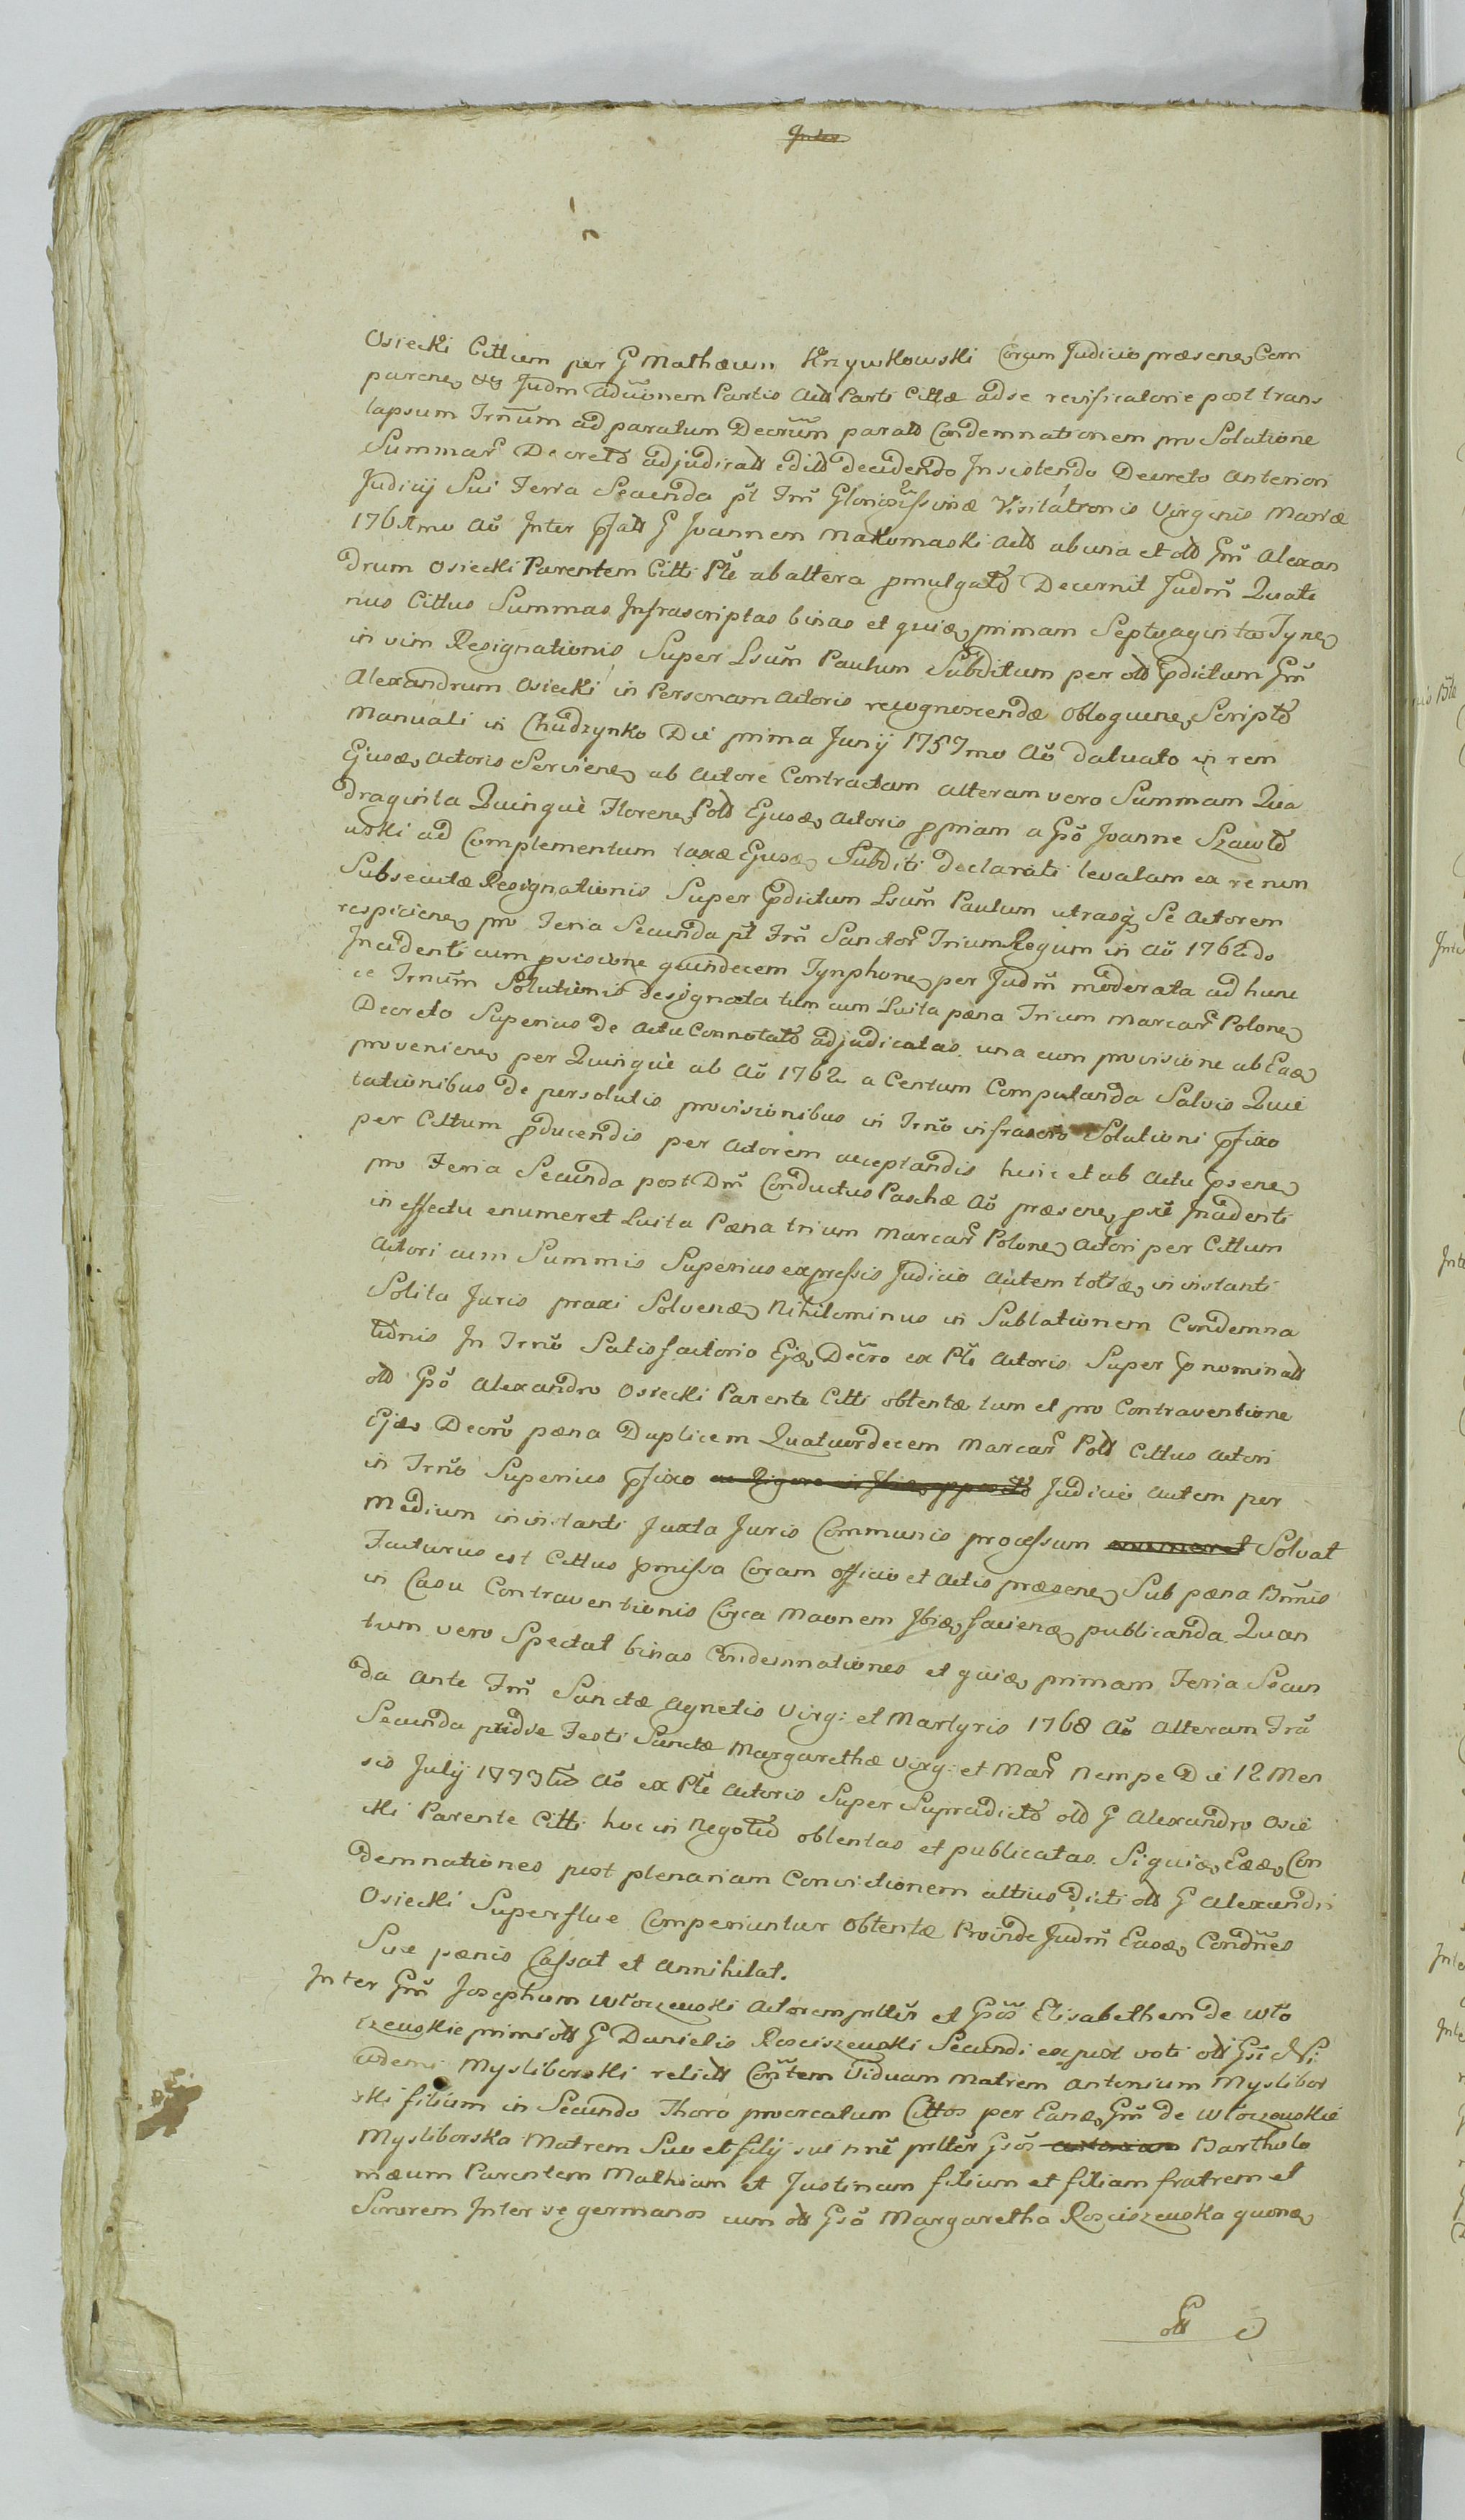 Inter
Osiecki Cittum per G Mathæum Krzywkowski Coram Judicio præsene Com
parene Judm Aduonem Partis Actt Parti Cittæ ad se revisicatorie post trans
lapsum Trnum ad paratum Decrum paratt Condemnationem pro Solutione
Summar Decreto adjudicatt edito decidendo Insistendo Decreto Anteriori
Judicij Sui Feria Secunda pt Fm Gloriosissimæ Visitationis Virginis Mariæ
mo Ao Inter G Joannem Makomaski Actt ab una et ott Gm Alexan
drum Osiecki Parentem Citti Pte ab altera pmulgato Decernit Judm Quate
nus Cittus Summas Infrascriptas binas et quiæ primam Septuaginta Tyne
in vim Resignationis Super Lsum Paulum Subditum per ott pdictum Gm
Alexandrum Osiecki in Personam Actoris recognoscendæ obloquene Scripto
Manuali in Chudzynko Die prima Junij 1757mo Ao datuato in rem
Ejusæ Actoris Serviene ab Actore Contractam alteram vero Summam Qua
draginta Quinque Florene Pott Ejusæ Actoris ppriam a Gso Joanne Szawlo
wski ad Complementum taxæ Ejusæ Subditi declarati levatam ex re non
Subsecutæ Resignationis Super pdictum Lsum Paulum utrasq Se Actorem
respiciene pro Feria Secunda pt Fm Sanctor Trium Regum in Ao 1762do
Incidenti cum pvisione quindecem Tynphone per Judm moderata ad hunc
ce Trnum Solutionis designata tum cum Luita pæna Trium Marcar Polone
Decreto Superius de Actu Connotato adjudicatas una cum provisione ab Eaæ
proveniene per Quinque ab Ao 1762 a Centum Computanda Salvis Quie
tationibus de persolutis provisionibus in Trno infrascro Solutioni pfixo
per Cittum pducendis per Actorem acceptandis hisce et ab Actu psene
pro Feria Secunda post Dm Conductus Paschæ Ao præsene pxe Incidenti
in effectu enumeret Luita Pæna trium Marcar Polone Actori per Cittum
Actori cum Summis Superius expressis Judicio Autem totæ in instanti
Solita Juris praxi Solvenæ Nihilominus in Sublationem Condemna
tionis In Trno Satisfactorio Ejæ Decro ex Pte Actoris Super pnominatt
ott Gso Alexandro Osiecki Parente Citti obtentæ tum et pro Contraventione
Ejæ Decro pæna Duplicem Quatuordecem Marcar Pott Cittus Actori
in Trno Superius pfixo Judicio Autem per
Medium in instanti Juxta Juris Communis processum enumeret Solvat
Facturus est Cittus pmissa Coram officio et Actis præsene Sub pæna Bnnis
in Casu Contraventionis Circa Maonem Ibiæ facienæ publicanda Quan
tum vero Spectat binas Condemnationes et quiæ primam Feria Secun
da Ante Fm Sanctæ Agnetis Virg: et Martyris 1768 Ao Alteram Fria
Secunda pridie Festi Sanctæ Margarethæ Virg: et Mar Nempe Die 12 Men
sis Julij 1773tio Ao ex Pte Actoris Super Supradicto ott G Alexandro Osie
cki Parente Citti hoc in Negotio obtentas et publicatas. Siquiæ Eææ Con
demnationes post plenariam Convictionem altius dicti ott G Alexandri
Osiecki Superflue Comperiuntur obtentæ Proinde Judm Easæ Condnes
Sive pænis Cassat et Annihilat.
Inter Gm Josephum Włoczewski Actorem prttr et Gsos Elisabethem de Wło
czewskie primi ott G Danielis Rosciszewski Secundi ex post voti ott Gsi Ni
codemi Mysliborski relictt Contem Viduam Matrem Antonium Myslibor
ski filium in Secundo Thoro procreatum Cittos per Eanæ Gm de Włoczewskie
Mysliborska Matrem Suo et filij sui nne prttr Gsos Bartholo
mæum Parentem Mathiam et Justinam filium et filiam fratrem et
Sororem Inter se germanos cum ott Gsa Margaretha Rosciszewska quonæ
ott